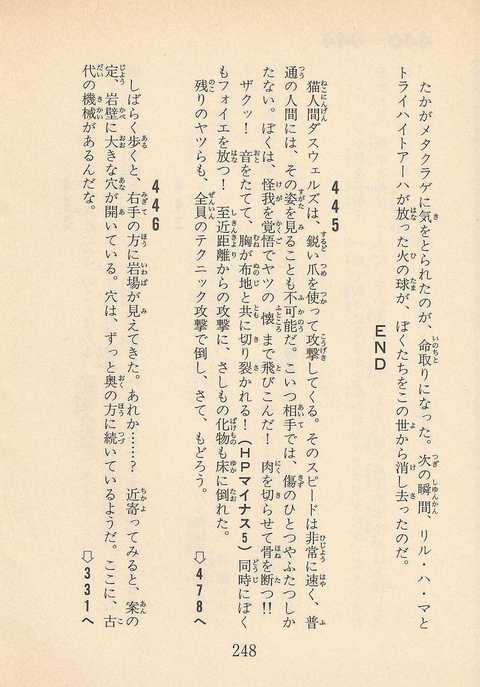 たかがメタクラゲに気をとられたのが、命取りになった。次の瞬間、リル・ハ・マと
トライハイトアーハが放った火の球が、ぼくたちをこの世から消し去ったのだ。
END
445
猫人間ダスウェルズは、鋭い爪を使って攻撃してくる。そのスピードは非常に速く、普
通の人間には、その姿を見ることも不可能だ。こいつ相手では、傷のひとつやふたつしか
たない。ぼくは、怪我を覚悟でヤツの懐まで飛びこんだ！　肉を切らせて骨を断つ!!
ザクッ！　音をたてて、胸が布地と共に切り裂かれる！(HPマイナス5)同時にぼく
もフォイエを放つ！　至近距離からの攻撃に、さしもの化物も床に倒れた。
残りのヤツらも、全員のテクニック攻撃で倒し、さて、もどろう。
⇨478へ
446
しばらく歩くと、右手の方に岩場が見えてきた。あれか……？　近寄ってみると、案の
定、岩壁に大きな穴が開いている。穴は、ずっと奥の方に続いているようだ。ここに、古
代の機械があるんだな。
⇨331へ
248